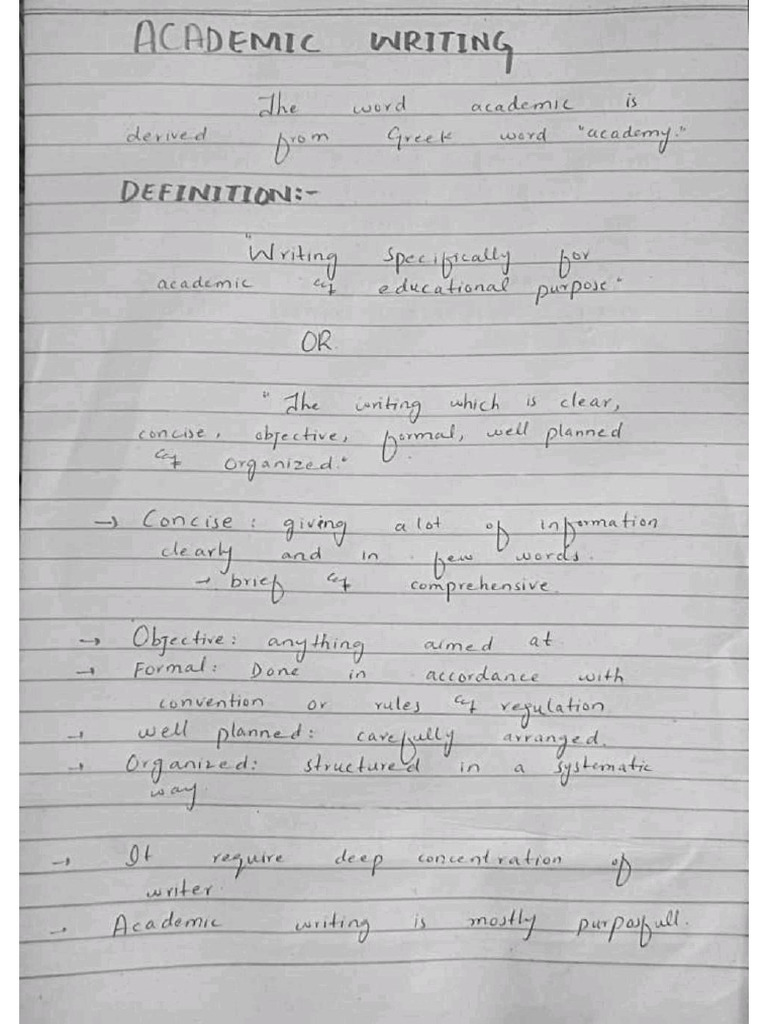 ACADEMIC WRITING
The word academic is
derived from Greek word "academy."
DEFINITION:-
"Writing specifically for
academic & educational purpose"
OR
"The writing which is clear,
concise, objective, formal, well planned
& organized."
→ Concise: giving a lot of information
clearly and in few words.
→ brief & comprehensive
→ Objective: anything aimed at
→ Formal: Done in accordance with
convention or rules & regulation
→ well planned: carefully arranged.
→ Organized: structured in a systematic
way
→ It require deep concentration of
writer.
→ Academic writing is mostly purposfull.